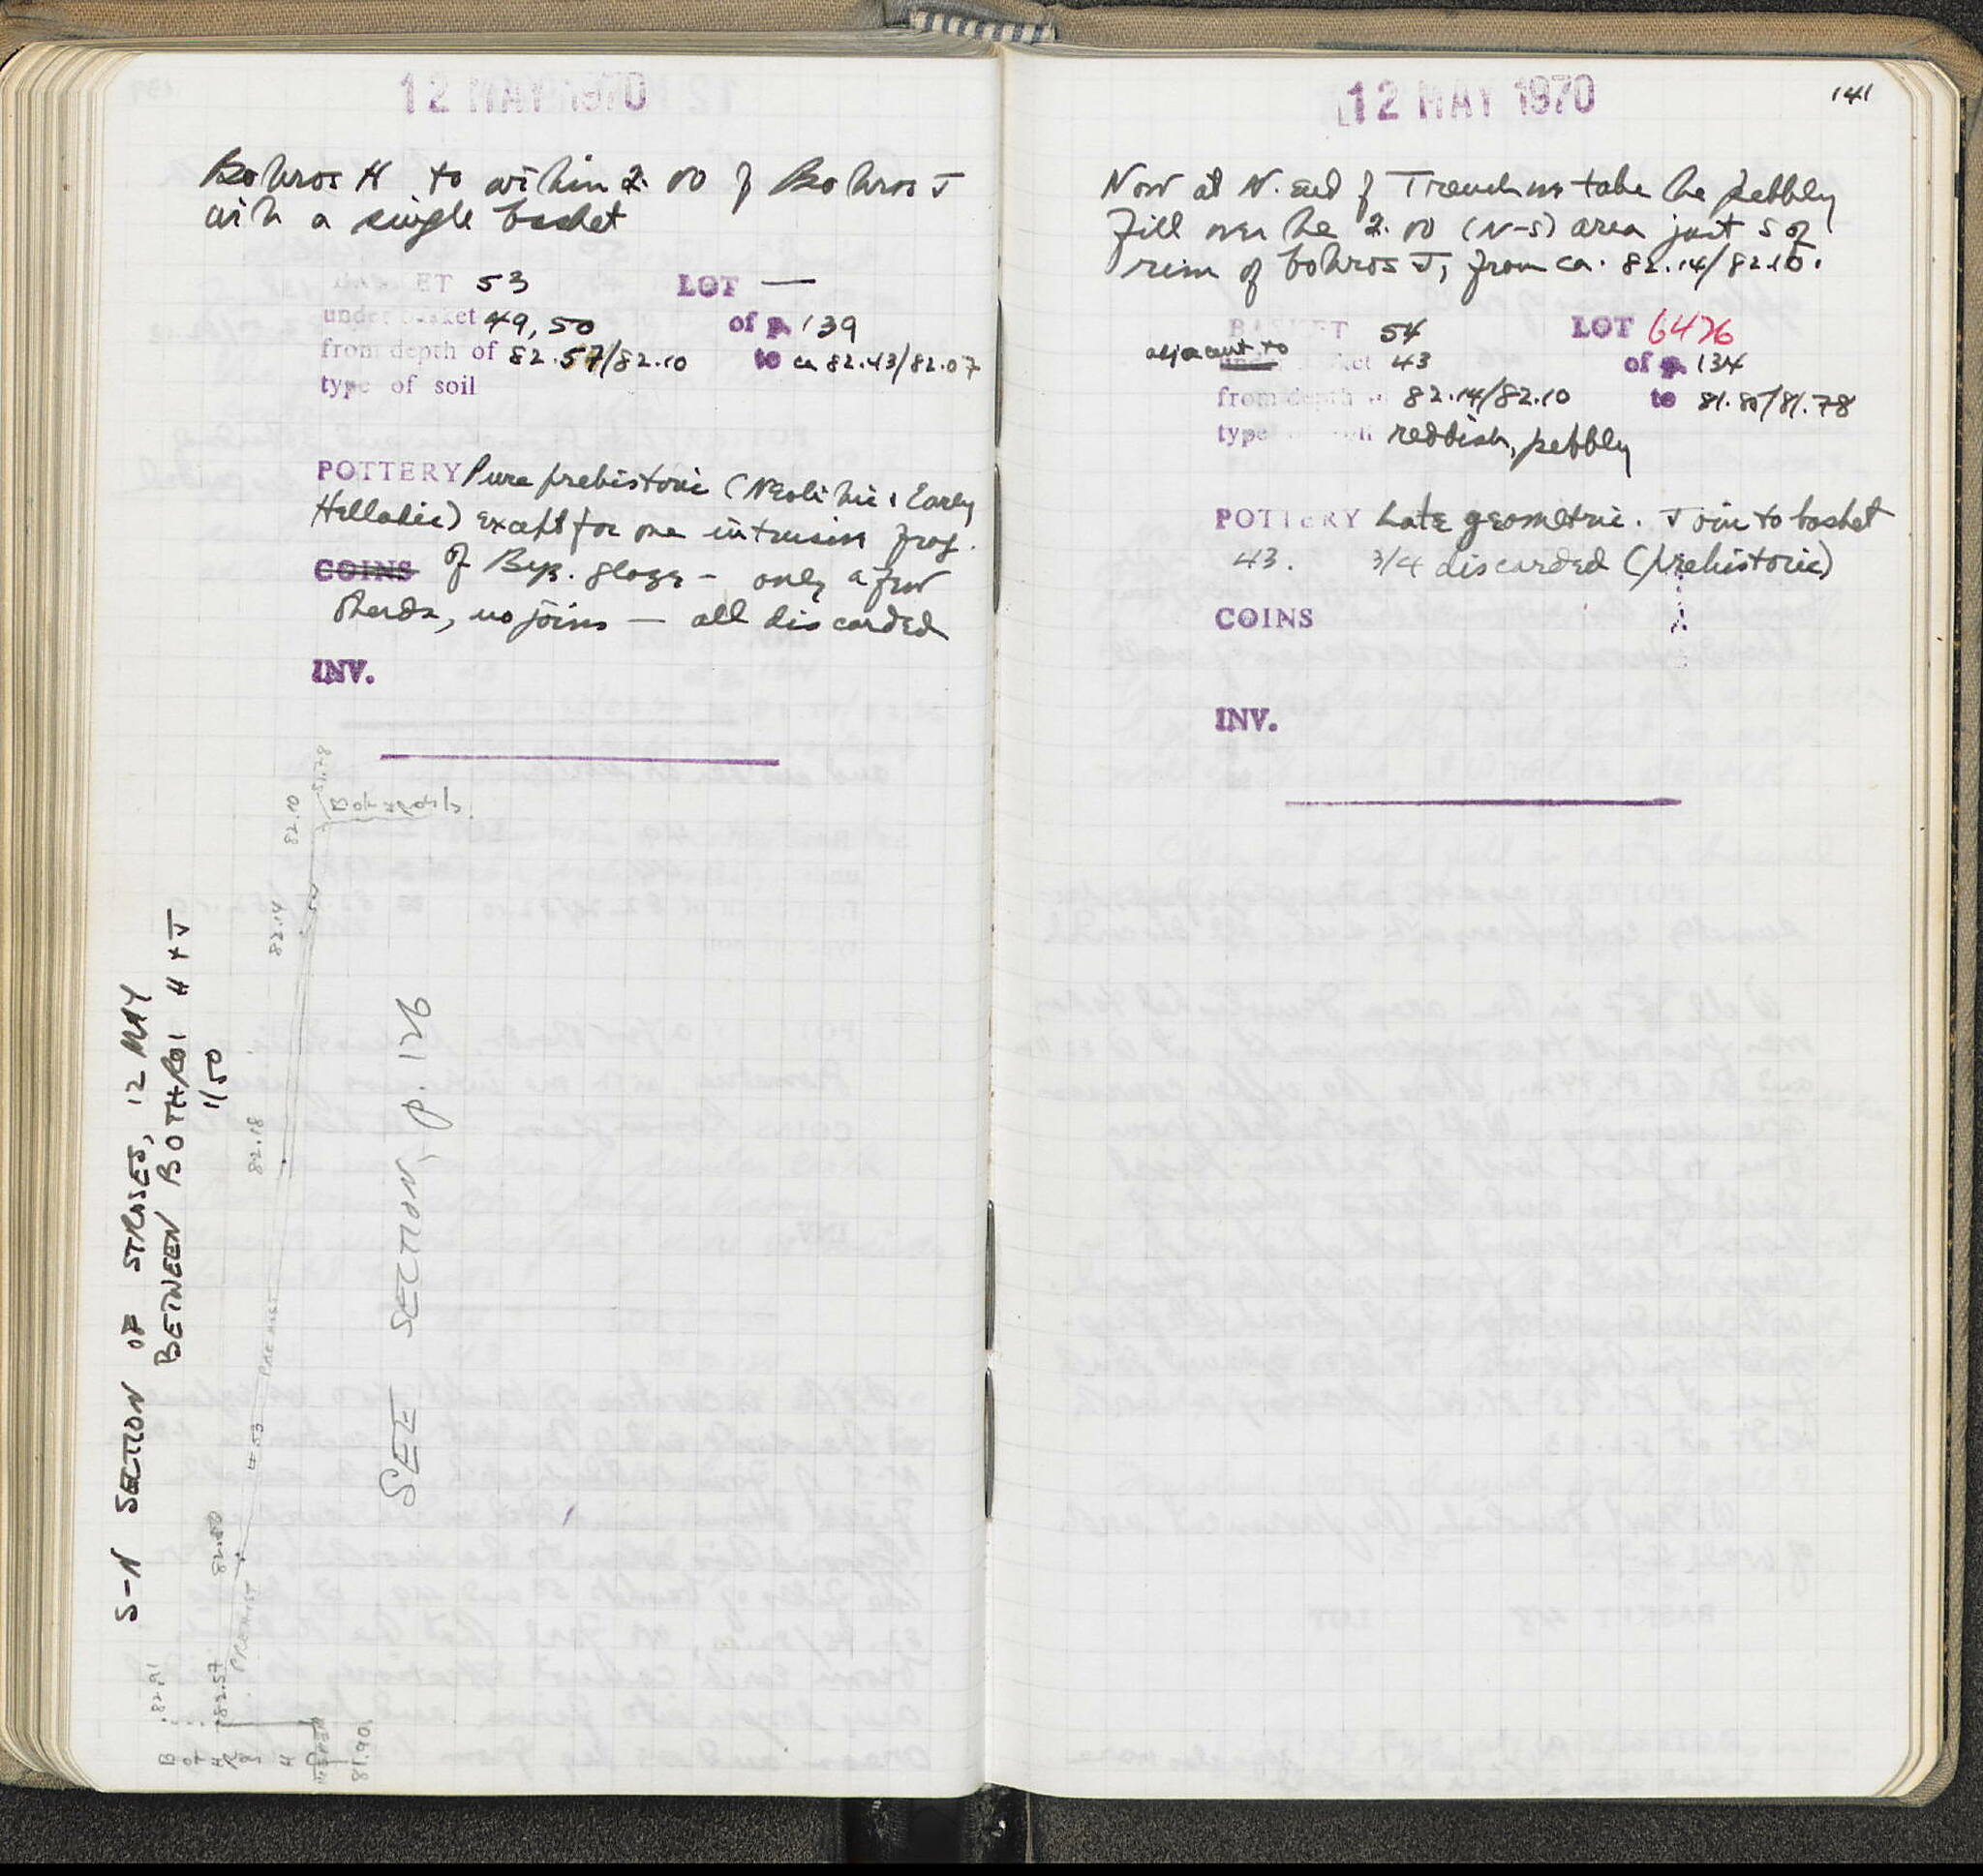 12 MAY 1970
Bothros H to within 2.00 of Bothros J
with a single basket
BASKET 53 LOT —
under basket 49, 50 of p. 139
from depth of 82.57/82.10 to ca 82.43/82.07
type of soil
POTTERY Pure prehistoric (Neolithic & Early
Helladic) except for one intrusive frag.
COINS of Byz. glaze – only a few
sherds, no joins — all discarded
INV.
82.10
81.78
82.14
54
S-N SECTION OF STROSES, 12 MAY
BETWEEN BOTHROI H & J
1/50
82.18
SEE SECTION, p. 126
# 53 PREHIST
82.50
PREHIST
82.91
82.57
BOTHROS H
81.90
12 MAY 1970
141
Now at N. end of Trench we take the pebbly
fill over the 2.00 (N-S) area just S of
rim of bothros J, from ca. 82.14/82.10.
BASKET 54 LOT 6476
adjacent to
under basket 43 of p. 134
from depth of 82.14/82.10 to 81.80/81.78
type of soil reddish, pebbly
POTTERY Late geometric. Join to basket
43. 3/4 discarded (prehistoric)
COINS
INV.